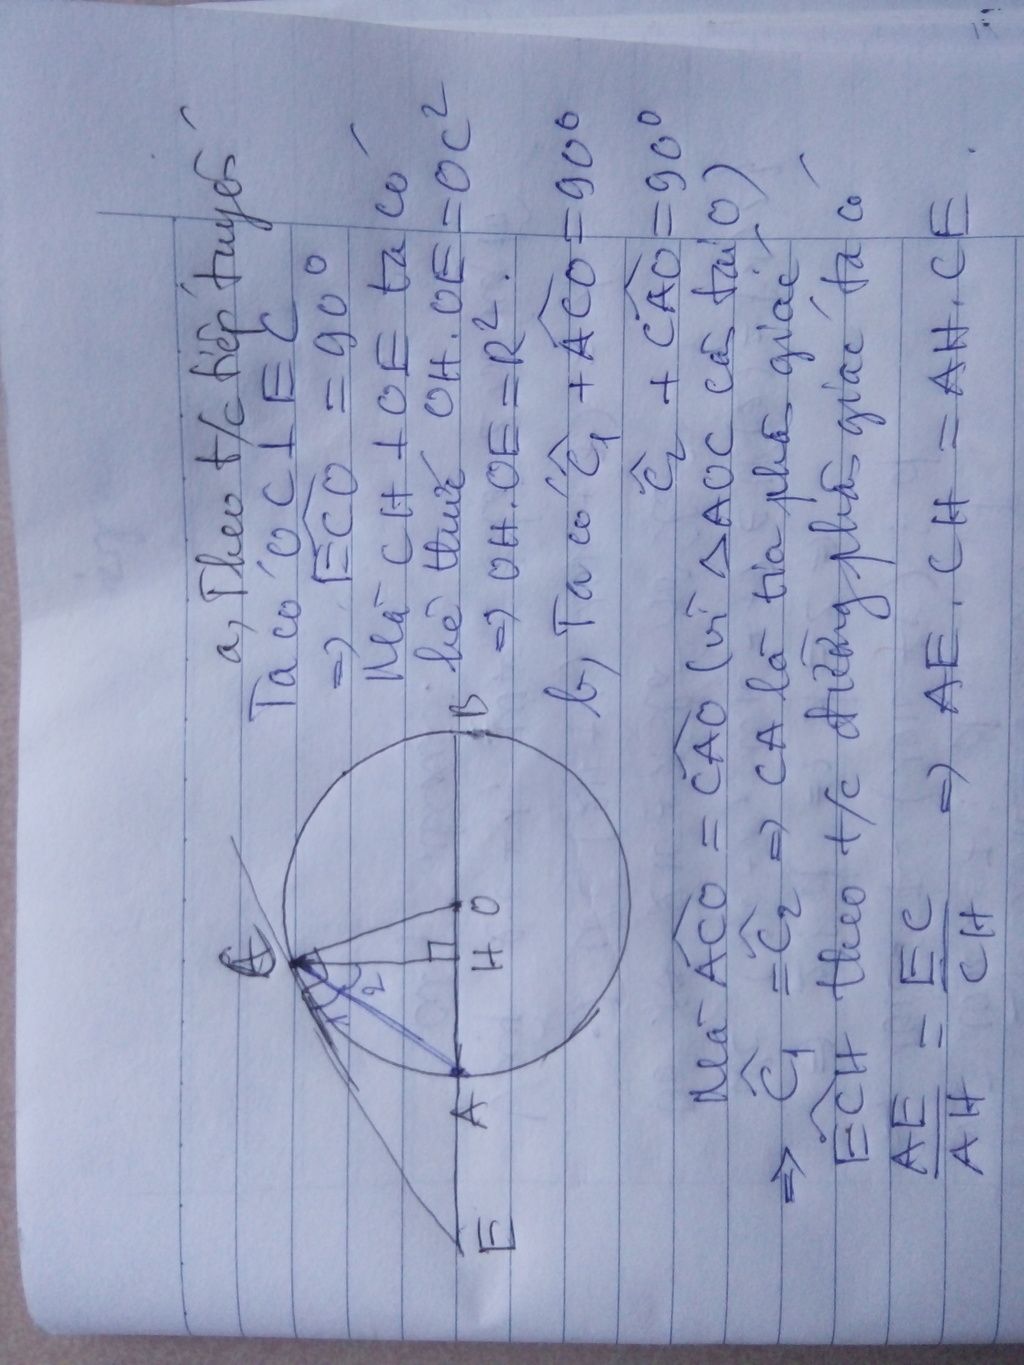 a, Theo t/c tiếp tuyến
Ta có OC ⊥ EC
=> ∠ECO = 90⁰
Mà CH ⊥ OE ta có
hệ thức OH.OE = OC²
=> OH.OE = R².
b, Ta có Ĉ₁ + ∠ACO = 90⁰
Ĉ₂ + ∠CAO = 90⁰
Mà ∠ACO = ∠CAO (vì △AOC cân tại O)
=> Ĉ₁ = Ĉ₂ => CA là tia phân giác
∠ECH theo t/c đường phân giác ta có
AE/AH = EC/CH => AE.CH = AH.CE.
E
A
H
O
B
1
2